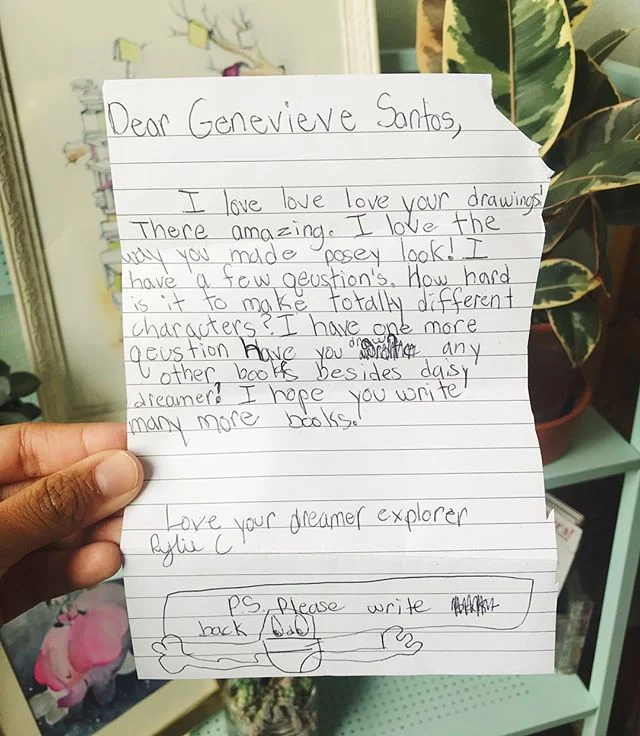 Dear Genevieve Santos,
I love love love your drawings!
There amazing. I love the
way you made posey look! I
have a few qeustion's. How hard
is it to make totally different
characters? I have one more
qeustion Have you drawn any
other books besides daisy
dreamer? I hope you write
many more books.
Love your dreamer explorer
Rylie C
P.S. Please write
back